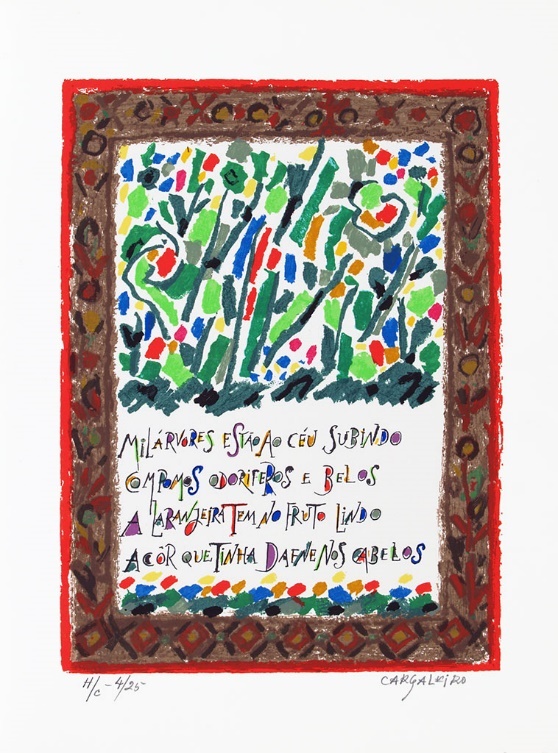 MIL ÁRVORES ESTÃO AO CÉU SUBINDO
COM POMOS ODORIFEROS E BELOS
A LARANJEIRA TEM NO FRUTO LINDO
A CÔR QUE TINHA DAFNE NOS CABELOS
H/C - 4/25
CARGALEIRO